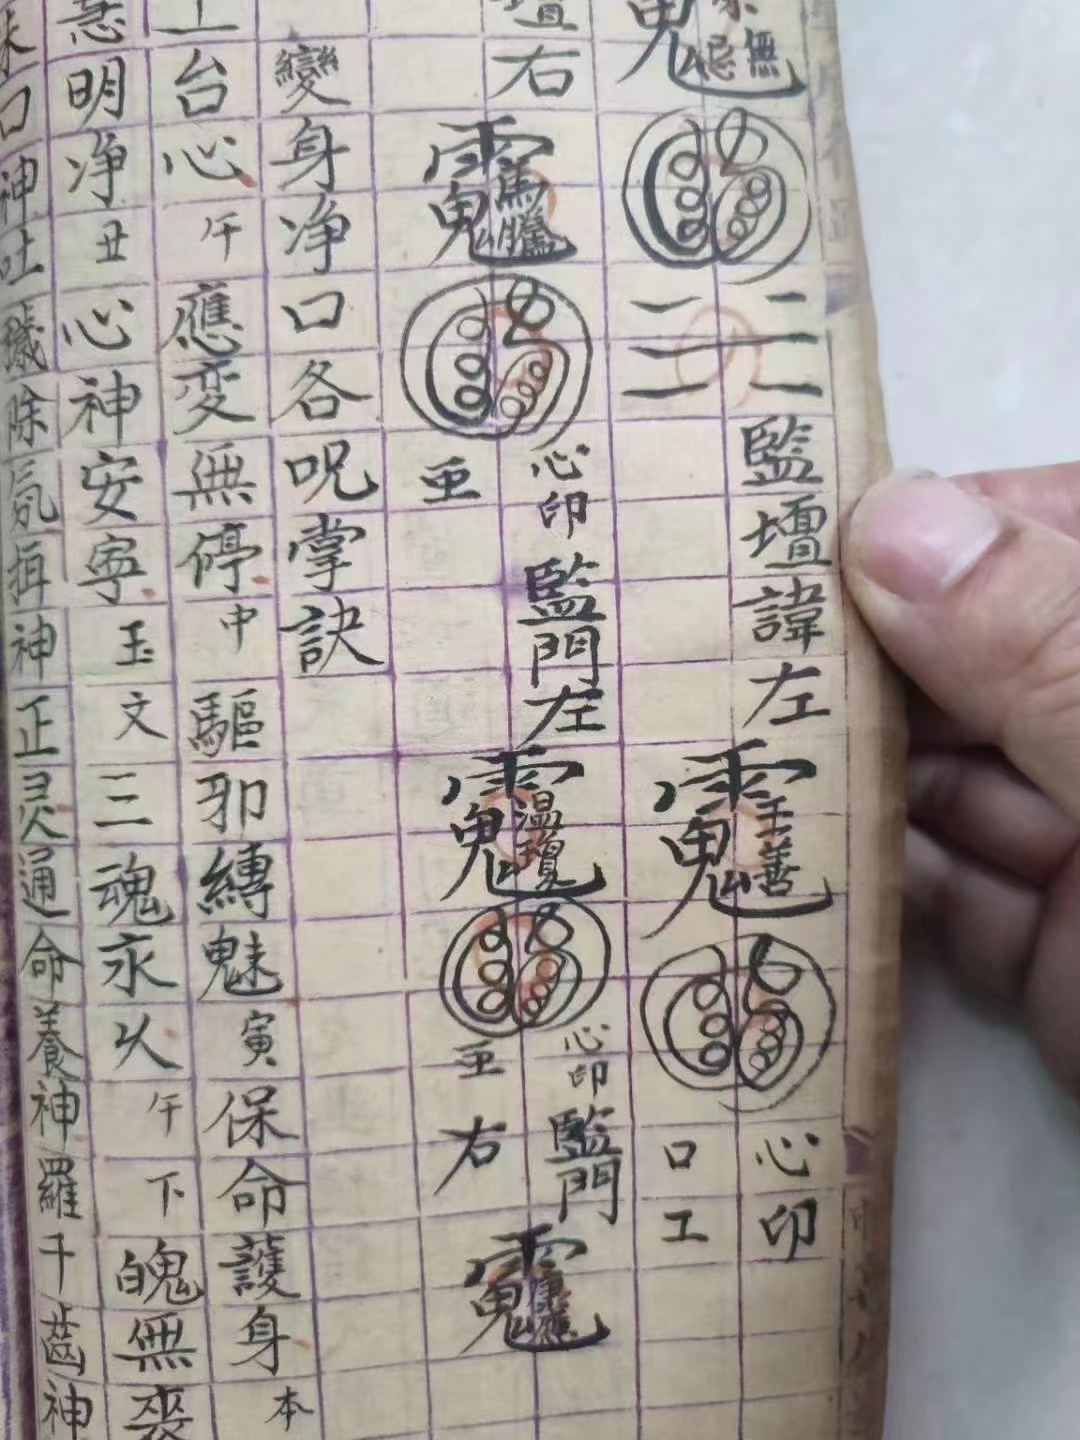 無忌
監壇諱左
王善
心印
口工
壇右
馬勝
心印
監門左
溫瓊
心印
監門右
康應
變身净口各呪掌訣
上台心午應変無停申驅邪縛魅寅保命護身本
慧明净丑心神安寧玉文三魂永久午下魄無喪
口神吐穢除氛揖神正灵通命養神羅千齒神